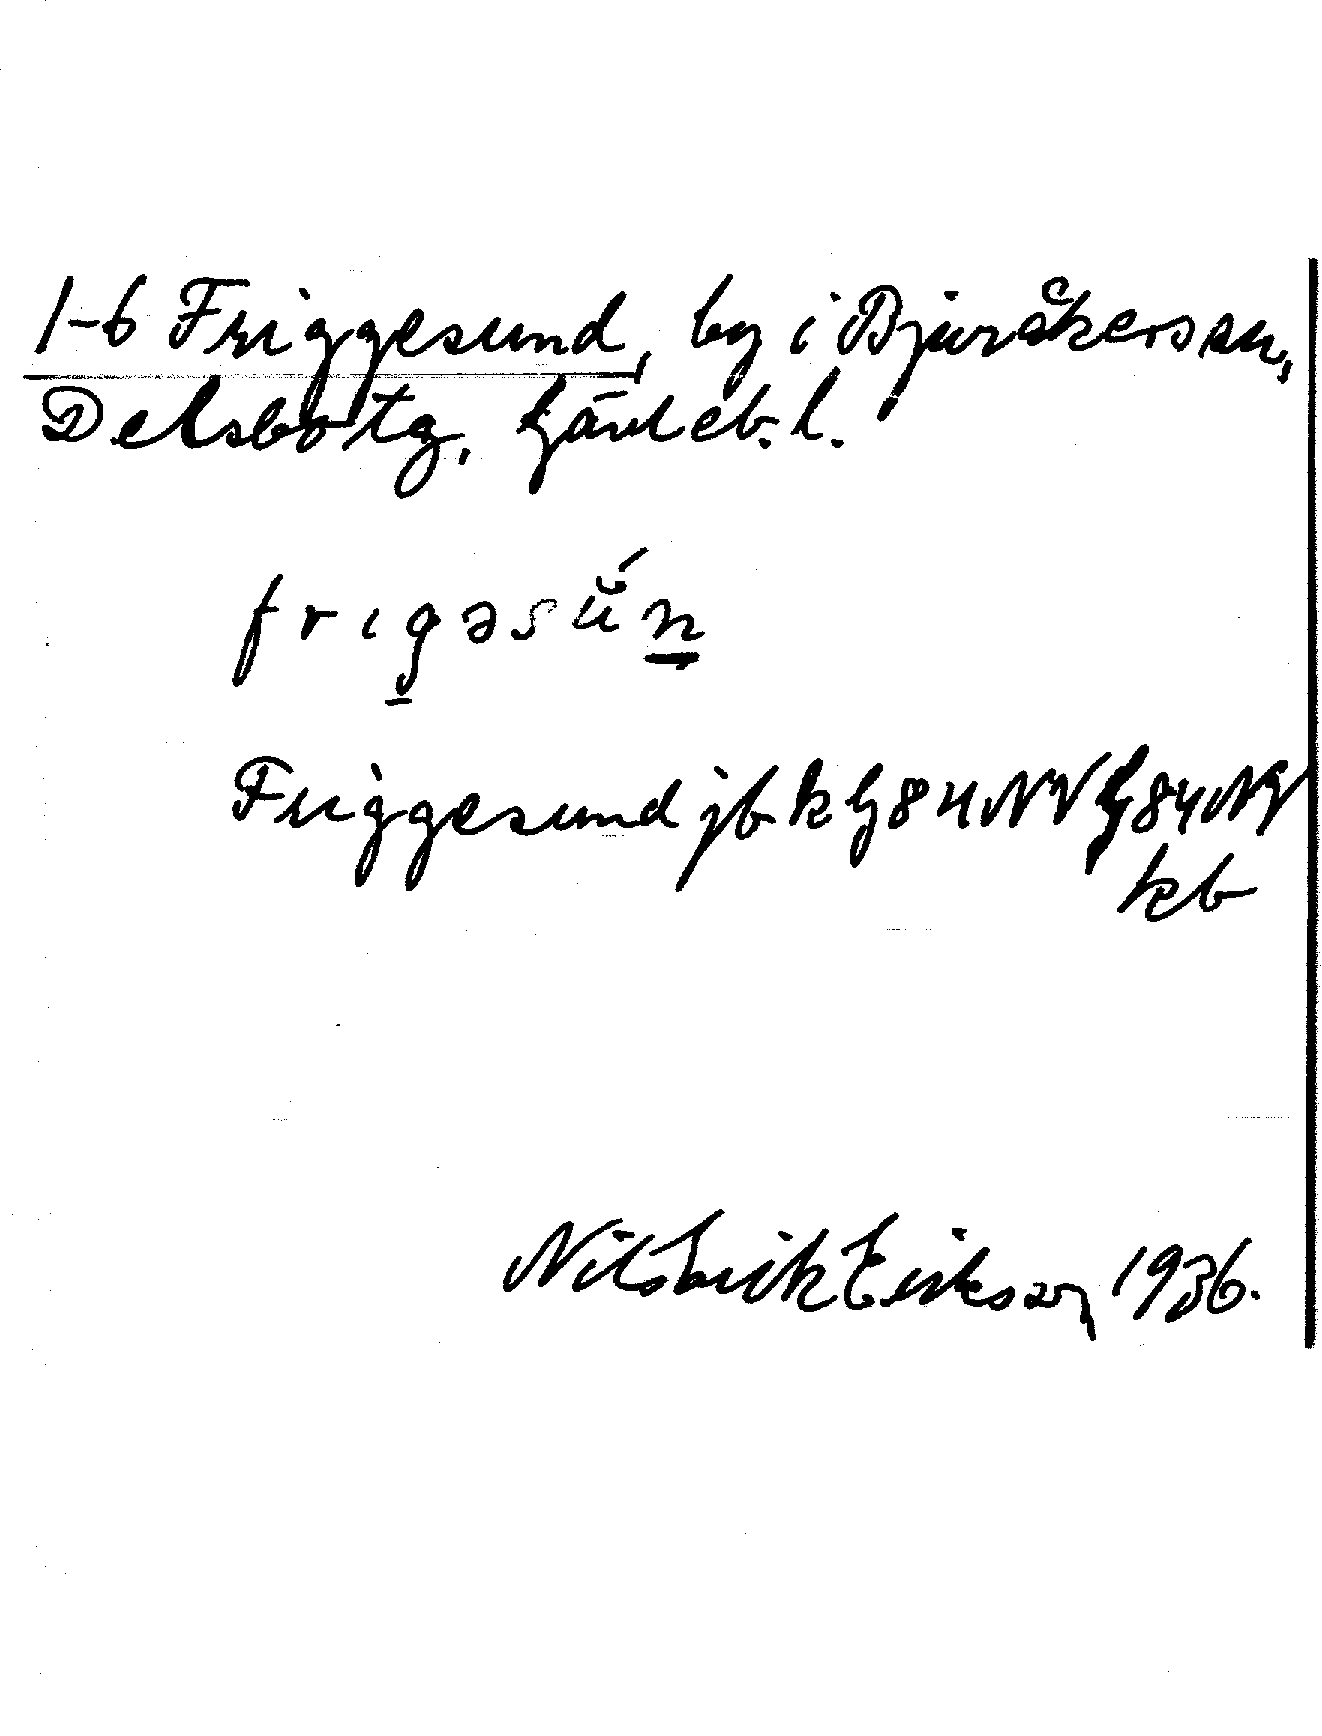 1-6 Friggesund, by i Bjuråkers sn,
Delsbo tg, Gävleb. l.
frigəsún
Friggesund jb k G 84 NV G 84 NV
kb
Nils Erik Erikson 1936.